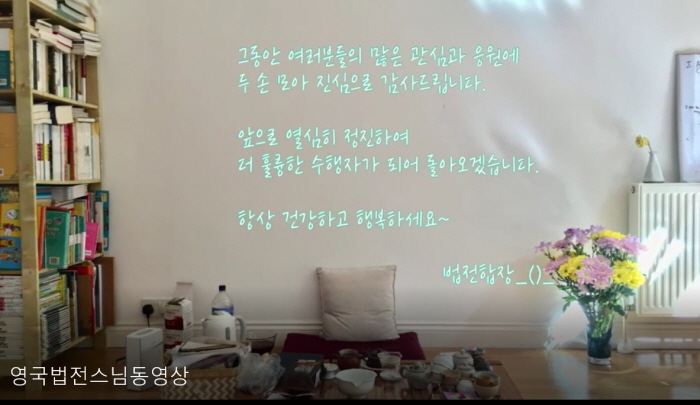 그동안 여러분들의 많은 관심과 응원에
두 손 모아 진심으로 감사드립니다.
앞으로 열심히 정진하여
더 훌륭한 수행자가 되어 돌아오겠습니다.
항상 건강하고 행복하세요~
법전합장_()_
영국법전스님동영상